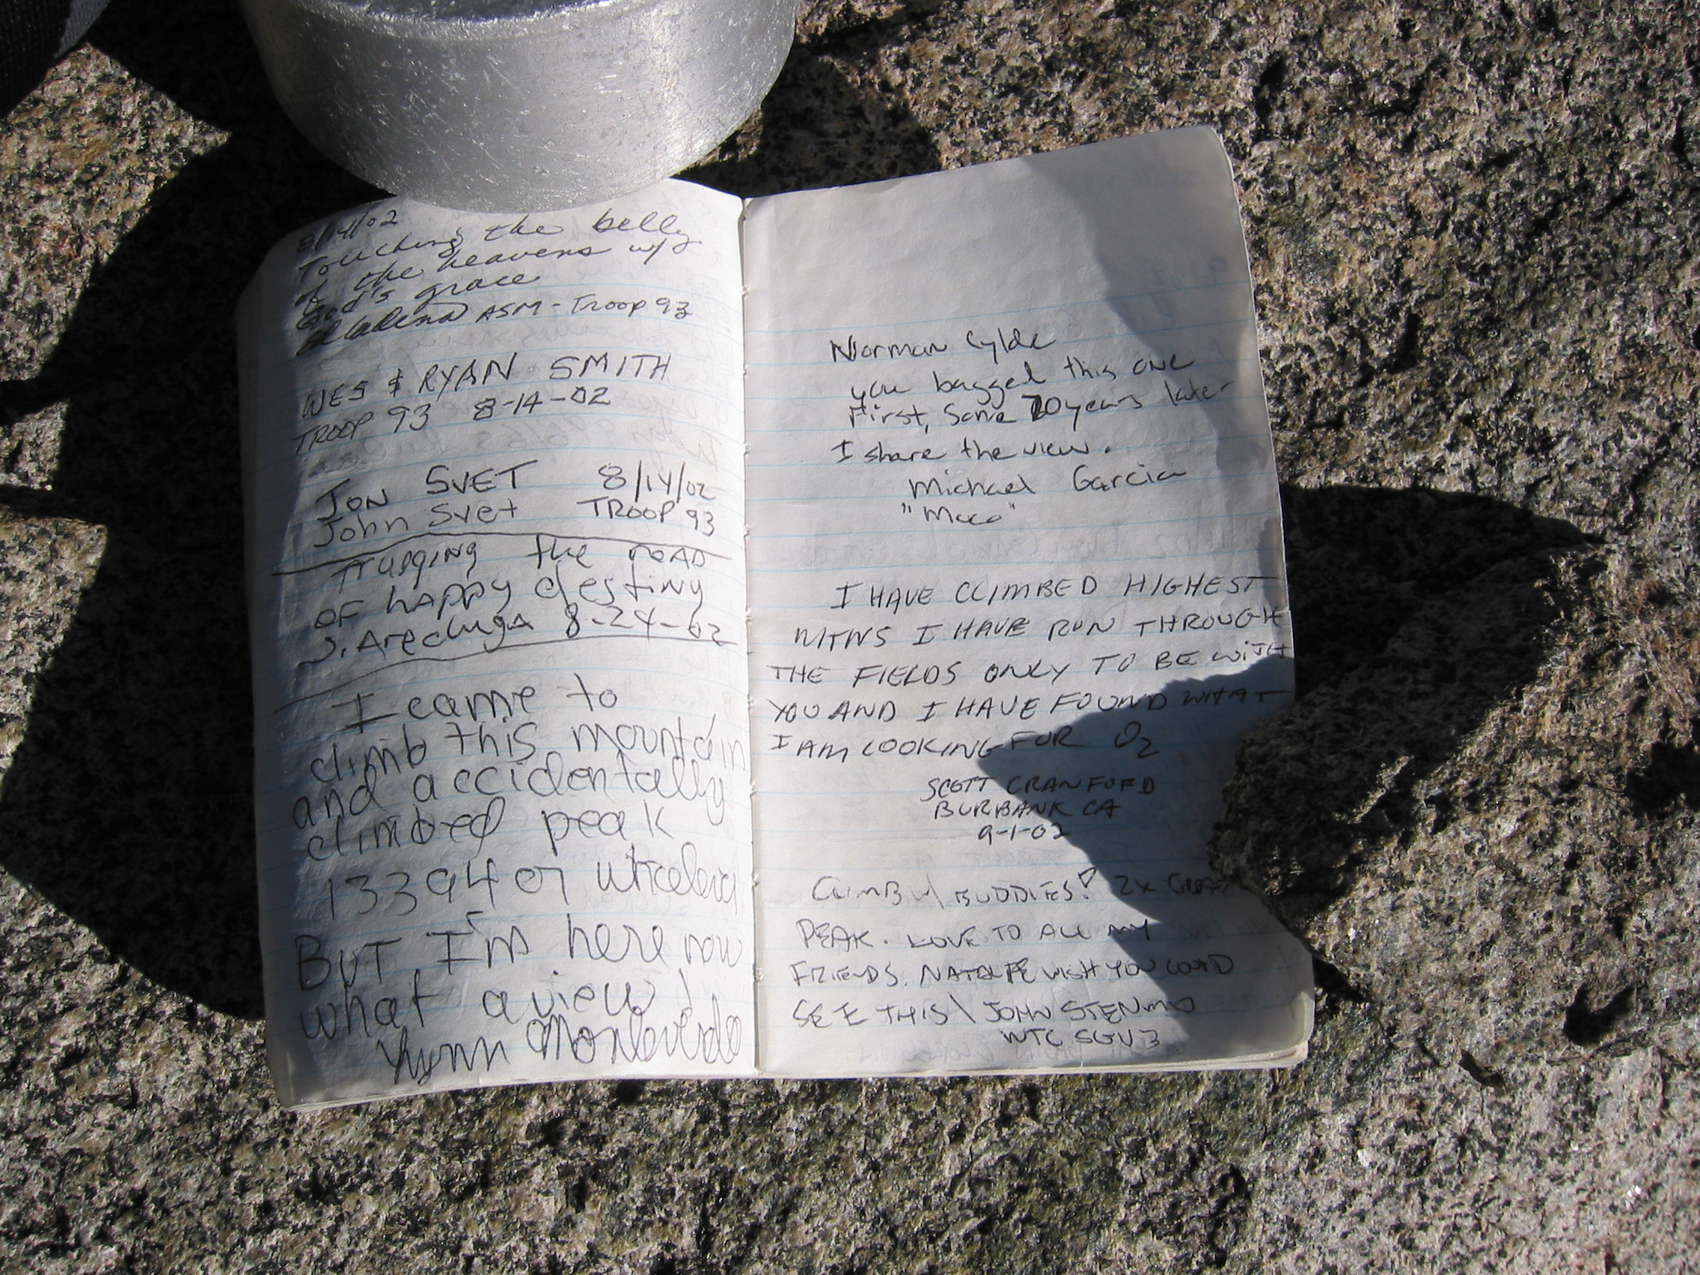 8/14/02
Touching the belly
of the heavens w/
God's grace
ASM - Troop 93
WES & RYAN SMITH
TROOP 93 8-14-02
JON SVET 8/14/02
John Svet TROOP 93
Trudging the ROAD
OF happy destiny
J. Arechiga 8-24-02
I came to
climb this mountain
and accidentally
climbed peak
13394 or whatever
BUT I'm here now
what a view!
Lynn Monteverde
Norman Clyde
you bagged this one
First, Some 70 years later
I share the view.
Michael Garcia
I HAVE CLIMBED HIGHEST
MTNS I HAVE RUN THROUGH
THE FIELDS ONLY TO BE WITH
YOU AND I HAVE FOUND WHAT
I AM LOOKING FOR O2
SCOTT CRANFORD
BURBANK CA
9-1-02
CLIMB W/ BUDDIES! 2x GREAT
PEAK. LOVE TO ALL MY
FRIENDS. NATALIE WISH YOU COULD
SEE THIS \ JOHN
WTC SGV 3